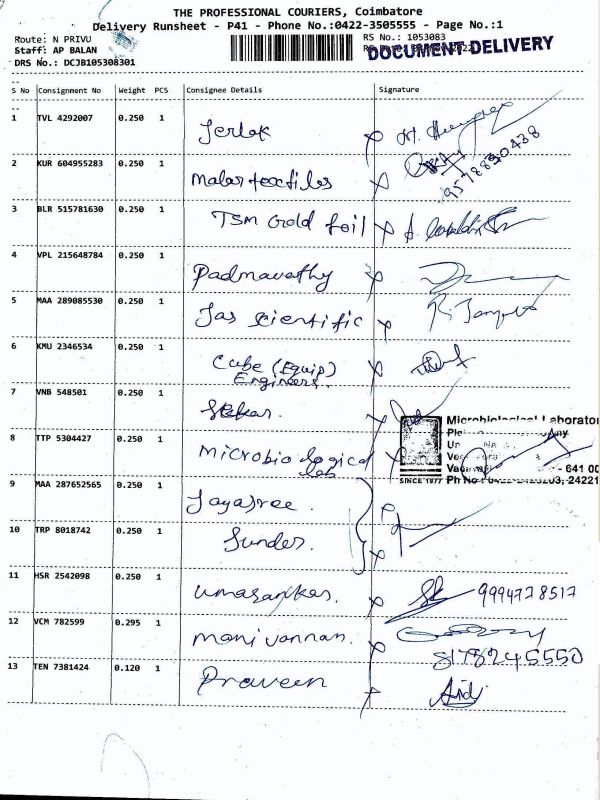 THE PROFESSIONAL COURIERS, Coimbatore
Delivery Runsheet - P41 - Phone No.:0422-3505555 - Page No.:1
Route: N PRIVU
RS No.: 1053083
DOCUMENT DELIVERY
Staff: AP BALAN
DRS No.: DCJB105308301
S No Consignment No Weight PCS Consignee Details Signature
1 TVL 4292007 0.250 1 Jerlok
2 KUR 604955283 0.250 1 Malar textiles 9578830438
3 BLR 515781630 0.250 1 TSM Gold foil
4 VPL 215648784 0.250 1 Padmavathy
5 MAA 289085530 0.250 1 Jas scientific
6 KMU 2346534 0.250 1 Cube (Equip)
Engineers.
7 VNB 548501 0.250 1
Microbiological Laborator
8 TTP 5304427 0.250 1 microbiological
lab
- 641 00
SINCE 1977 Ph No 24221
9 MAA 287652565 0.250 1 Jayasree.
10 TRP 8018742 0.250 1 Sunder.
11 HSR 2542098 0.250 1 umasankar. 9994778517
12 VCM 782599 0.295 1 manivannan. 8178245550
13 TEN 7381424 0.120 1 Praveen